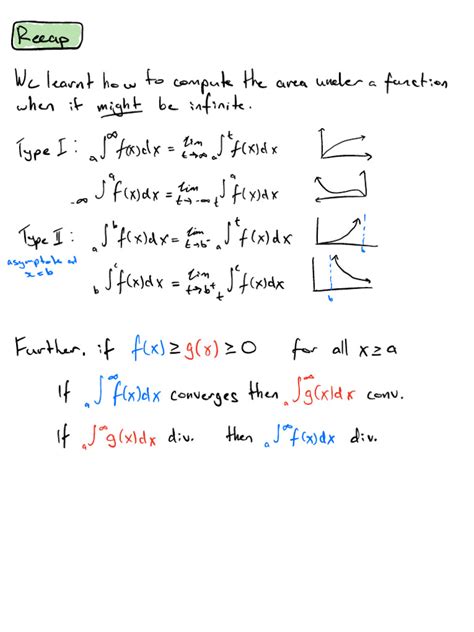 Recap
We learnt how to compute the area under a function
when it might be infinite.
Type I: ₐ∫^∞ f(x)dx = lim_{t→∞} ₐ∫^t f(x)dx
₋∞∫^a f(x)dx = lim_{t→-∞} ₜ∫^a f(x)dx
Type II: ₐ∫^b f(x)dx = lim_{t→b⁻} ₐ∫^t f(x)dx
b
asymptote at
x=b
b∫^c f(x)dx = lim_{t→b⁺} ₜ∫^c f(x)dx
b
Further, if f(x) ≥ g(x) ≥ 0 for all x ≥ a
If ₐ∫^∞ f(x)dx converges then ₐ∫^∞ g(x)dx conv.
If ₐ∫^∞ g(x)dx div. then ₐ∫^∞ f(x)dx div.